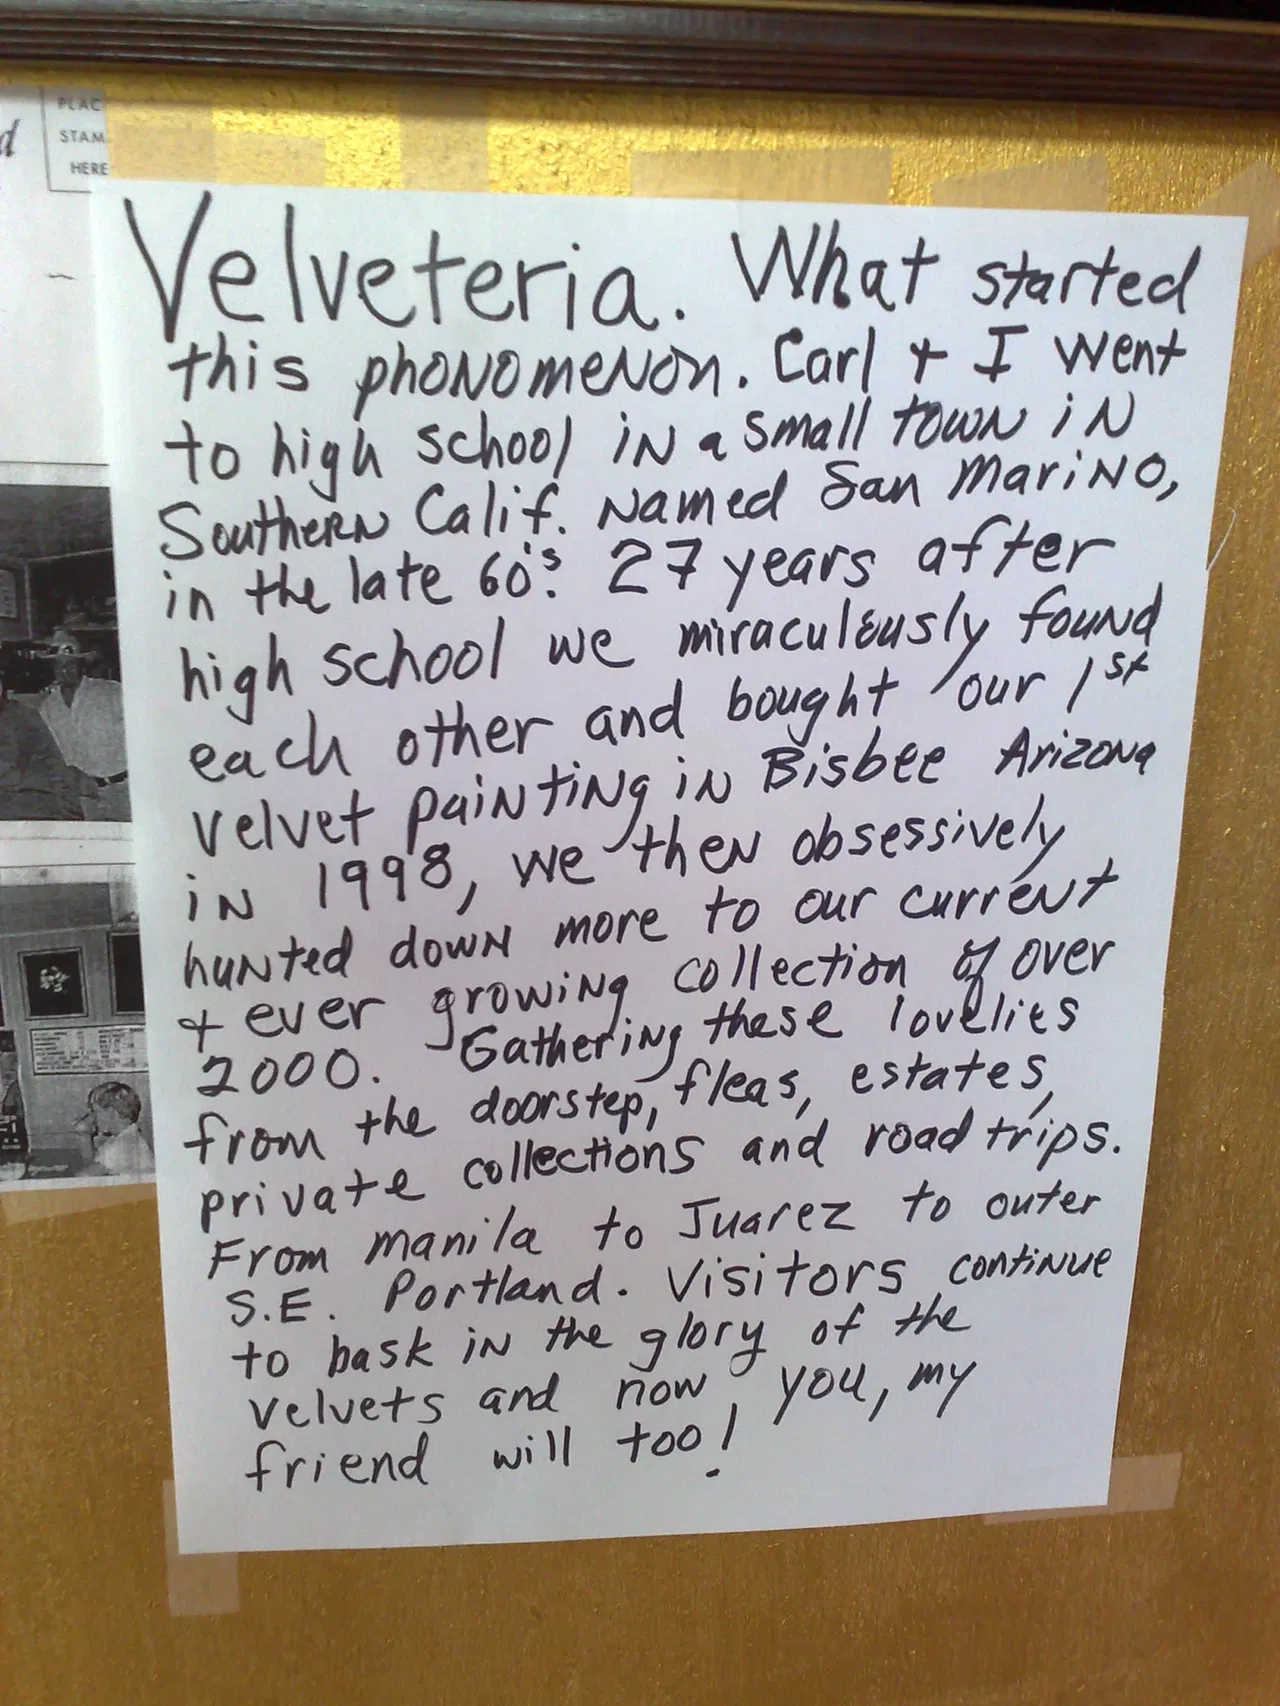 d
PLAC
STAM
HERE
Velveteria. What started
this phonomenon. Carl + I went
to high school in a small town in
Southern Calif. named San Marino,
in the late 60's. 27 years after
high school we miraculously found
each other and bought our 1st
velvet painting in Bisbee Arizona
in 1998, we then obsessively
hunted down more to our current
+ ever growing collection of over
2000. Gathering these lovelies
from the doorstep, fleas, estates,
private collections and road trips.
From manila to Juarez to outer
S.E. Portland. Visitors continue
to bask in the glory of the
velvets and now you, my
friend will too!